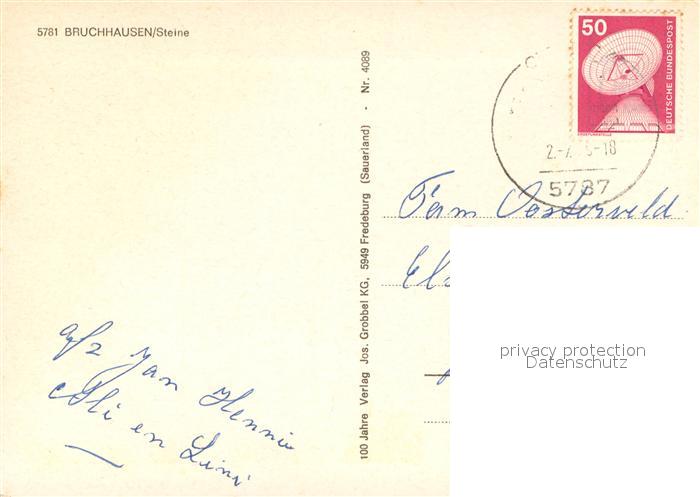 5781 BRUCHHAUSEN/Steine
50
DEUTSCHE BUNDESPOST
ERDEFUNKSTELLE
5787
Fam Oosterveld
privacy protection
Datenschutz
100 Jahre Verlag Jos. Grobbel KG, 5949 Fredeburg (Sauerland) - Nr. 4089
afz Jan Hennie
Ali en Lini